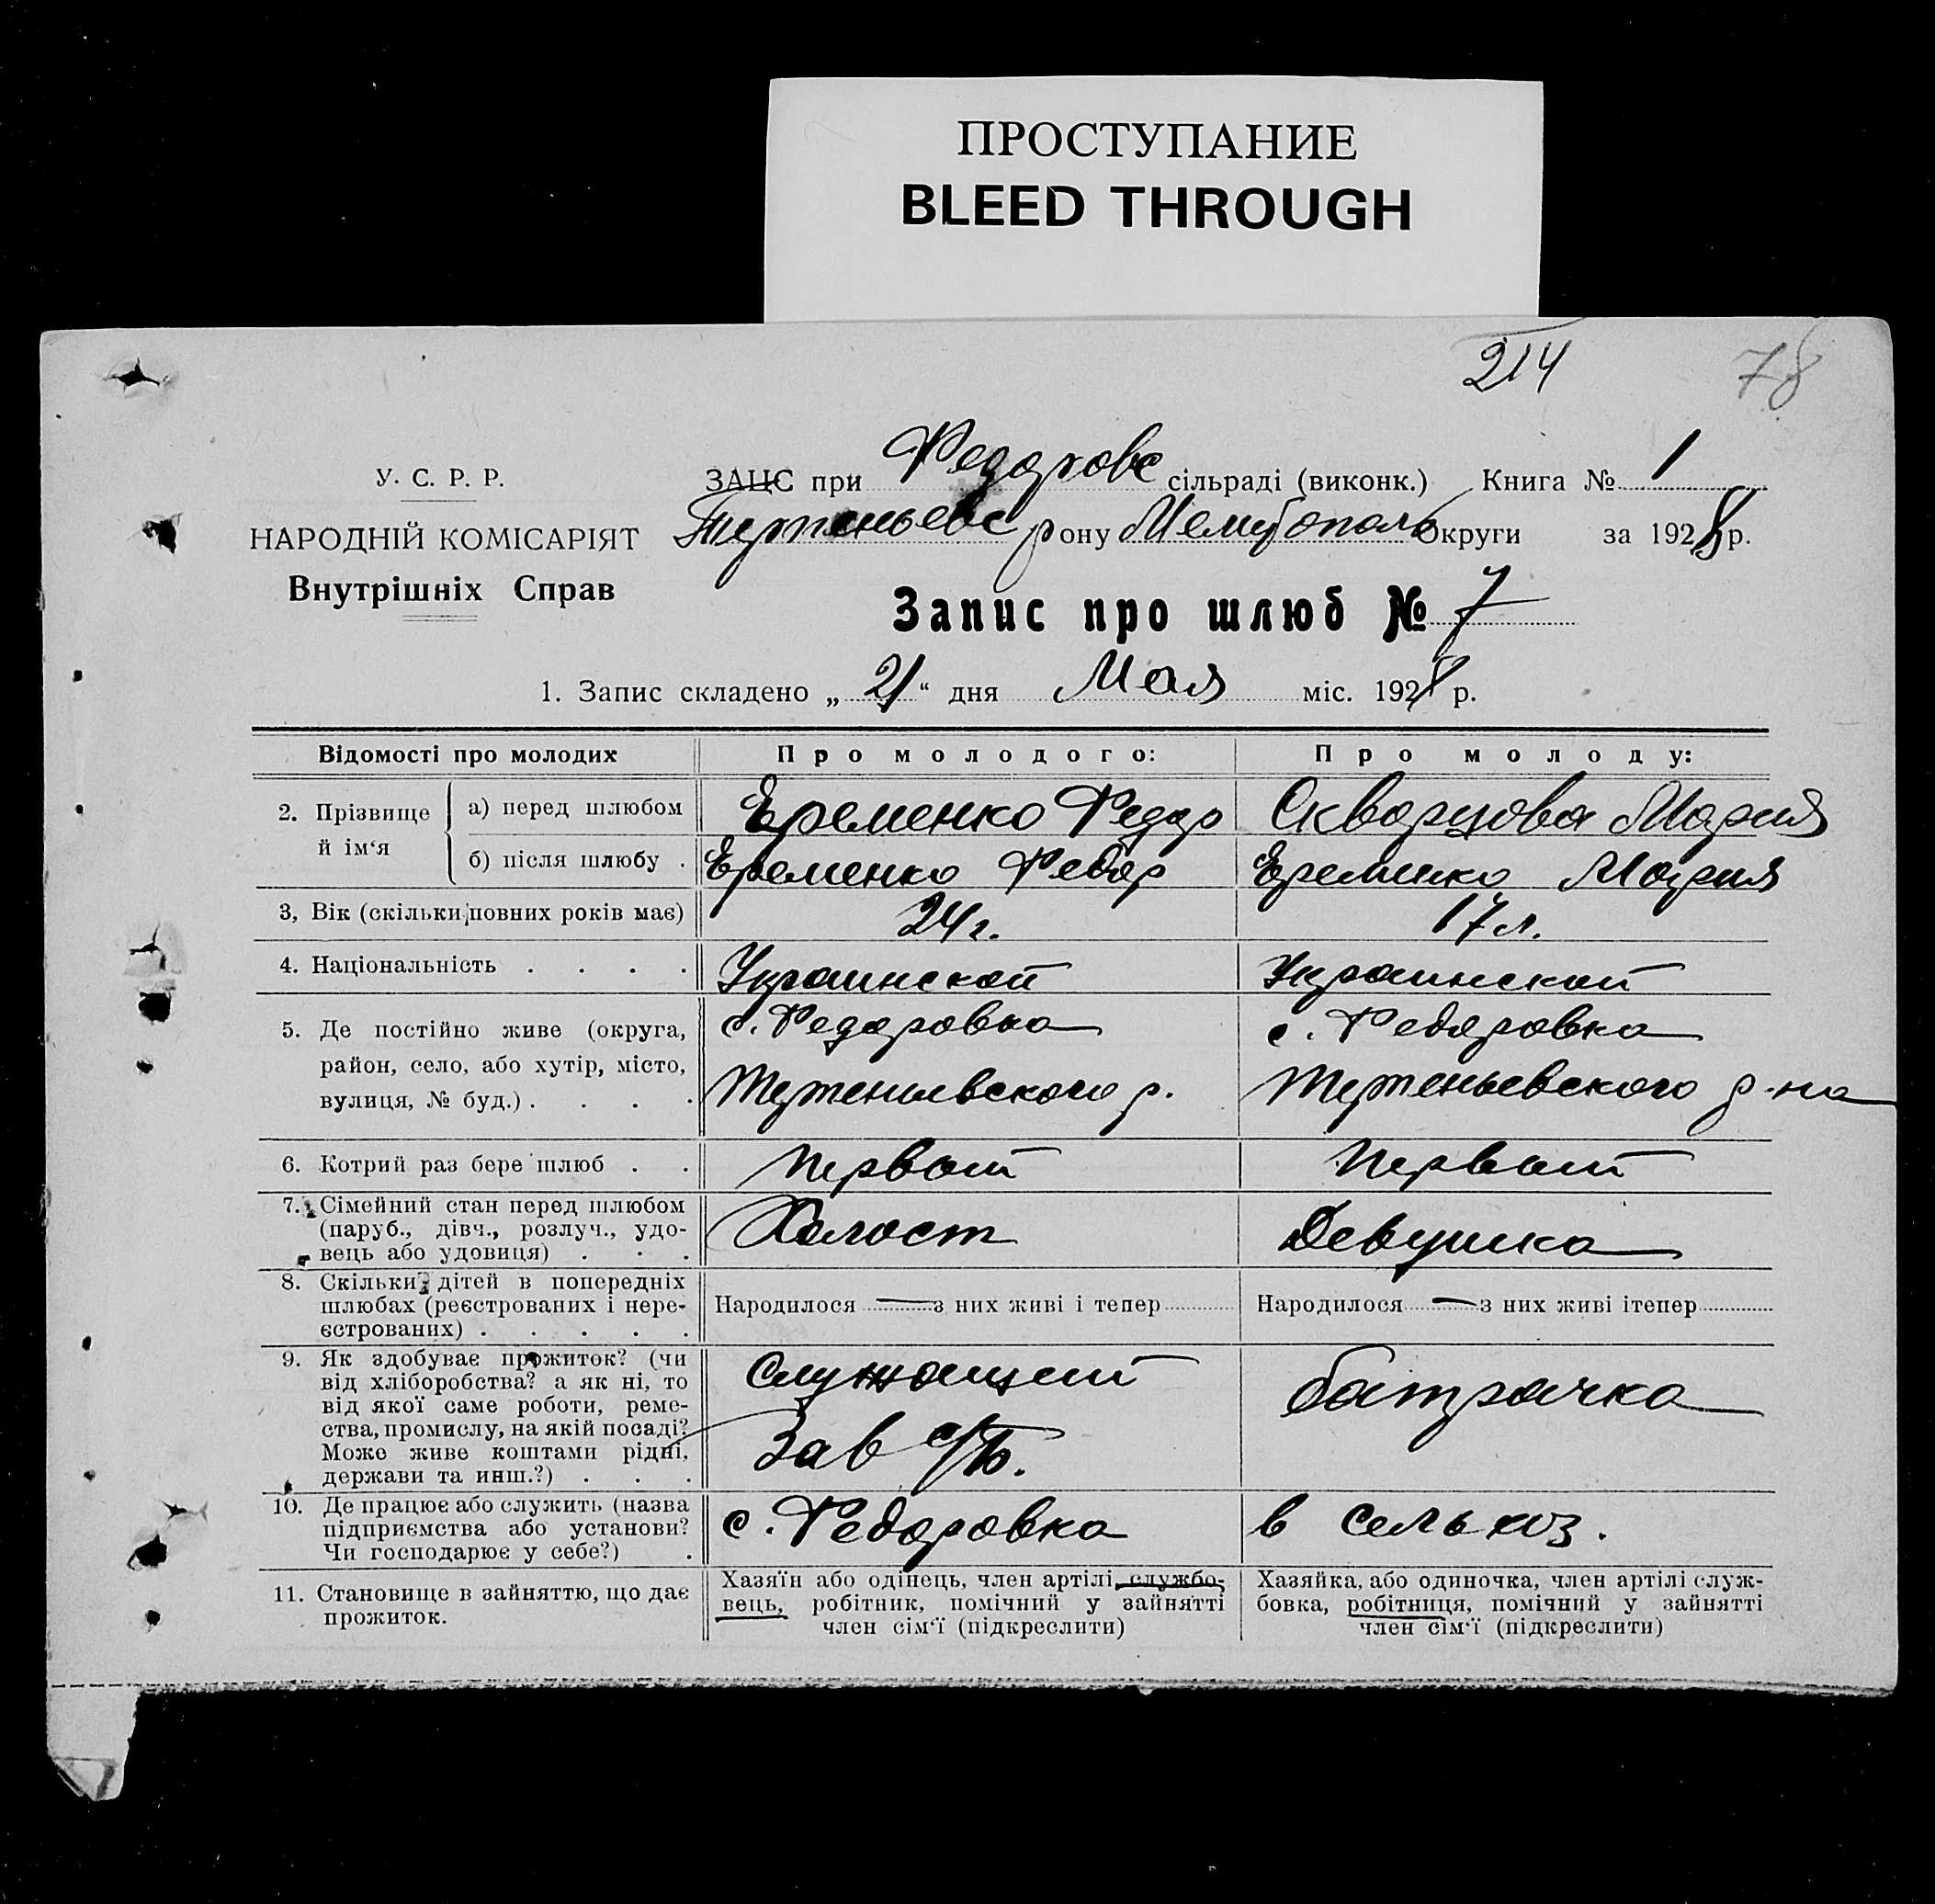 ПРОСТУПАНИЕ
BLEED THROUGH
214 78
У. С. Р. Р.
НАРОДНІЙ КОМІСАРІЯТ
Внутрішніх Справ
ЗАЦС при Федоровс сільраді (виконк.) Книга № 1
рону Мелитополь округи за 1928 р.
Запис про шлюб № 7
1. Запис складено „ 21 “ дня Мая міс. 1928 р.
Відомості про молодих Про молодого: Про молоду:
2. Прізвище й ім‘я
а) перед шлюбом Еременко Федор Скварцова Мария
б) після шлюбу . Еременко Федор Еременко Мария
3, Вік (скільки повних років має) 24 г. 17 л.
4. Національність . . . . Украинской Украинской
5. Де постійно живе (округа, с. Федоровка с. Федоровка
район, село, або хутір, місто,
вулиця, № буд.) . . . . р. р-на
6. Котрий раз бере шлюб . . Первый Первый
7. Сімейний стан перед шлюбом
(паруб., дівч., розлуч., удо-
вець або удовиця) . . . Халост Девушка
8. Скільки дітей в попередніх
шлюбах (реєстрованих і нере-
єстрованих) . . . . . Народилося — з них живі і тепер Народилося — з них живі ітепер
9. Як здобуває прожиток? (чи
від хліборобства? а як ні, то
від якої саме роботи, реме-
ства, промислу, на якій посаді?
Може живе коштами рідні,
держави та инш.?) . . .
Служащий
Зав
батрачка
10. Де працює або служить (назва
підприємства або установи?
Чи господарює у себе?) .
с. Федоровка
в сельхоз.
11. Становище в зайняттю, що дає
прожиток.
Хазяїн або одінець, член артілі, службо-
вець, робітник, помічний у зайнятті
член сім‘ї (підкреслити)
Хазяйка, або одиночка, член артілі служ-
бовка, робітниця, помічний у зайнятті
член сім‘ї (підкреслити)